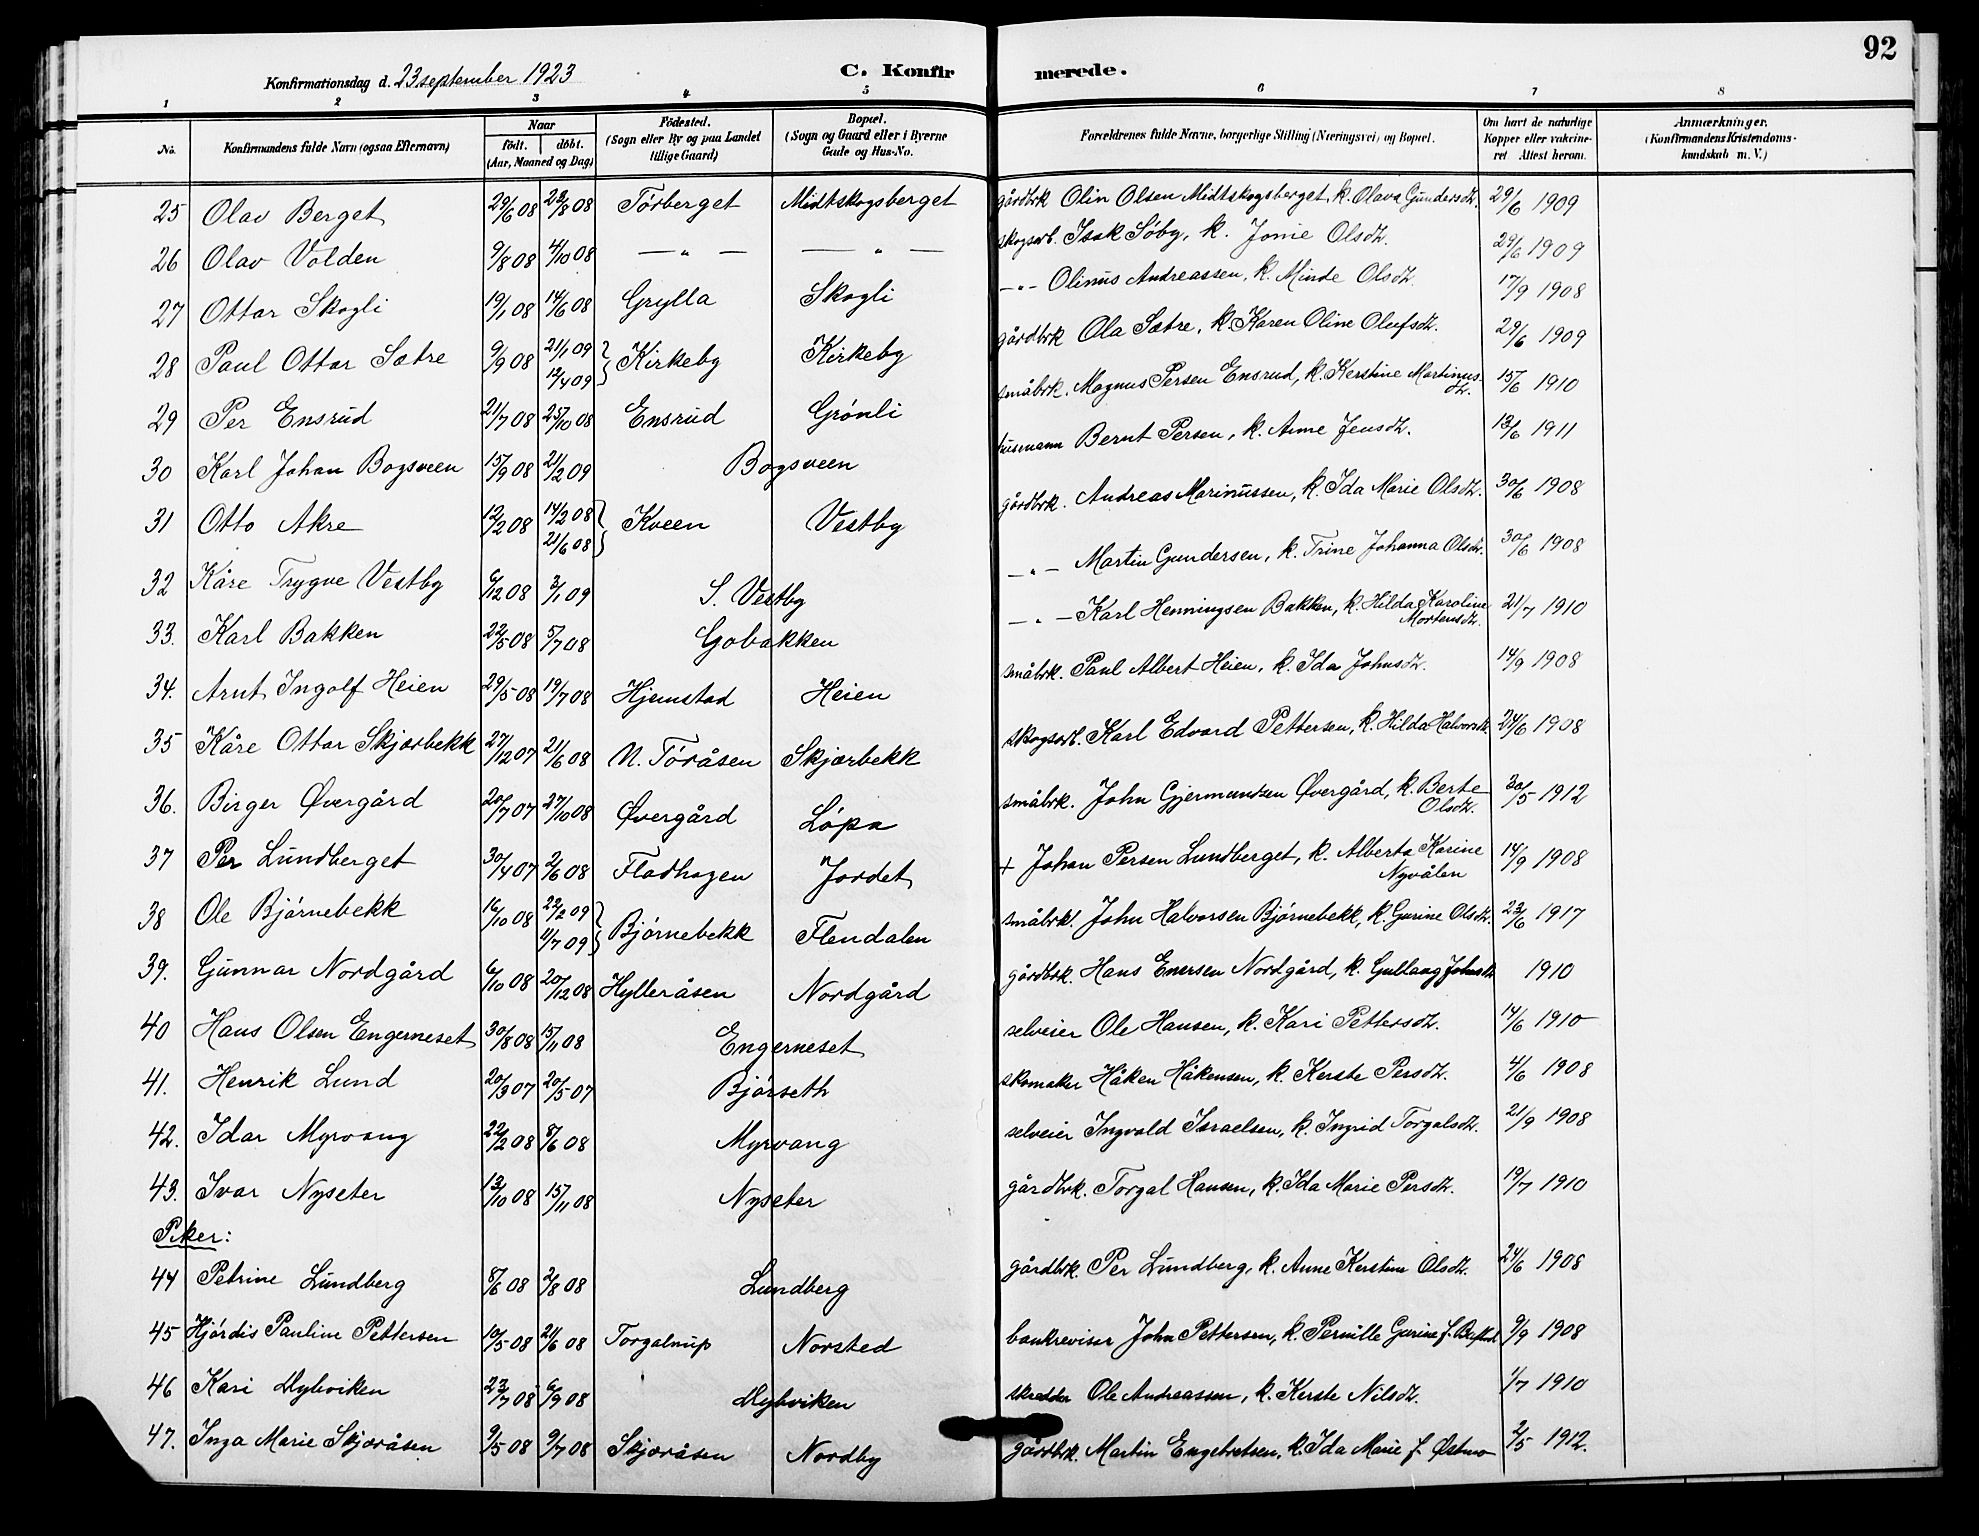 92
Konfirmationsdag d. 23 september 1923
C. Konfirmerede.
1 2 3 4 5 6 7 8
No. Konfirmandens fulde Navn (ogsaa Efternavn) Naar født. døbt. (Aar, Maaned og Dag) Fødested. (Sogn eller By og paa Landet tillige Gaard) Bopæl. (Sogn og Gaard eller i Byerne Gade og Hus-No. Forældrenes fulde Navne, borgerlige Stilling (Næringsvei) og Bopæl. Om havt de naturlige Kopper eller vakcineret Attest herom. Anmærkninger. (Konfirmandens Kristendomskundskab m. V.)
25 Olav Berget 29/6 08 23/8 08 Törberget Midtskogsberget gårdbrk Olin Olsen Midtskogsberget, k. Olava Gundersdt. 29/6 1909
26 Olav Volden 9/8 08 4/10 08 — " — — " — skogsarb. Isak Söby, k. Jonie Olsdt. 29/6 1909
27 Ottar Skogli 19/1 08 14/6 08 Grylla Skogli — " — Olinus Andreassen, k. Minde Olsdt. 17/9 1908
28 Paul Ottar Sætre 9/9 08 21/1 09 12/4 09 Kirkeby Kirkeby gårdbrk Ola Sætre, k. Karen Oline Olufsdt. 29/6 1909
29 Per Ensrud 21/7 08 25/10 08 Ensrud Grónli småbrk. Magnus Persen Ensrud, k. Kerstine Martinusdt. 15/6 1910
30 Karl Johan Bogsveen 15/9 08 21/2 09 Bogsveen husmann Bernt Persen, k. Anne Jensdt. 13/6 1911
31 Otto Akre 12/2 08 14/2 08 21/6 08 Kveen Vestby gårdbrk. Andreas Marinussen, k. Ida Marie Olsdt. 30/6 1908
32 Kåre Trygve Vestby 6/12 08 3/1 09 S. Vestby — " — Martin Gundersen, k. Trine Johanna Olsdt. 30/6 1908
33. Karl Bakken 22/5 08 5/7 08 Gobakken — " — Karl Henningsen Bakken, k. Hilda Karoline Mortensdt. 21/7 1910
34. Arnt Ingolf Heien 29/5 08 19/7 08 Hjemstad Heien småbrk. Paul Albert Heien, k. Ida Johnsdt. 14/9 1908
35 Kåre Ottar Skjærbekk 27/12 07 21/6 08 N. Töråsen Skjærbekk skogsarb. Karl Edvard Pettersen, k. Hilda Halvorsdt. 24/6 1908
36. Birger Øvergård 20/7 07 27/10 08 Øvergård Löpa småbrk. John Gjermundsen Øvergård, k. Berte Olsdt. 30/5 1912
37 Per Lundberget 30/4 07 2/6 08 Fladhagen Jordet + Johan Persen Lundberget, k. Alberta Karine Nyvålen 14/9 1908
38 Ole Bjórnebekk 16/10 08 22/2 09 4/7 09 Bjórnebekk Flendalen småbrk. John Halvorsen Bjórnebekk, k. Gurine Olsdt. 23/6 1917
39. Gunnar Nordgård 6/10 08 20/12 08 Hylleråsen Nordgård gårdbrk. Hans Enersen Nordgård, k. Gullaug Johnsdt. 1910
40 Hans Olsen Engerneset 30/8 08 15/11 08 Engerneset selveier Ole Hansen, k. Kari Pettersdt. 14/6 1910
41. Henrik Lund 20/3 07 20/5 07 Bjórseth skomaker Håken Håkensen, k. Kerste Persdt. 4/6 1908
42. Idar Myrvang 22/2 08 8/6 08 Myrvang selveier Ingvald Israelsen, k. Ingrid Torgalsdt. 21/9 1908
43. Ivar Nyseter 13/10 08 15/11 08 Nyseter gårdbrk. Torgal Hansen, k. Ida Marie Persdt. 19/7 1910
Piker:
44 Petrine Lundberg 8/6 08 2/8 08 Lundberg gårdbrk. Per Lundberg, k. Anne Kerstine Olsdt. 24/6 1908
45 Hjórdis Pauline Pettersen 10/5 08 21/6 08 Torgalrup Norsted bankrevisor John Pettersen, k. Pernille Gurine f. 9/9 1908
46 Kari Nybviken 23/7 08 6/9 08 Nybviken skredder Ole Andreassen, k. Kerste Nilsdt. 1/7 1910
47. Inga Marie Skjæråsen 9/5 08 9/7 08 Skjæråsen Nordby gårdbrk. Martin Engebretsen, k. Ida Marie f. Östmo 2/5 1912.